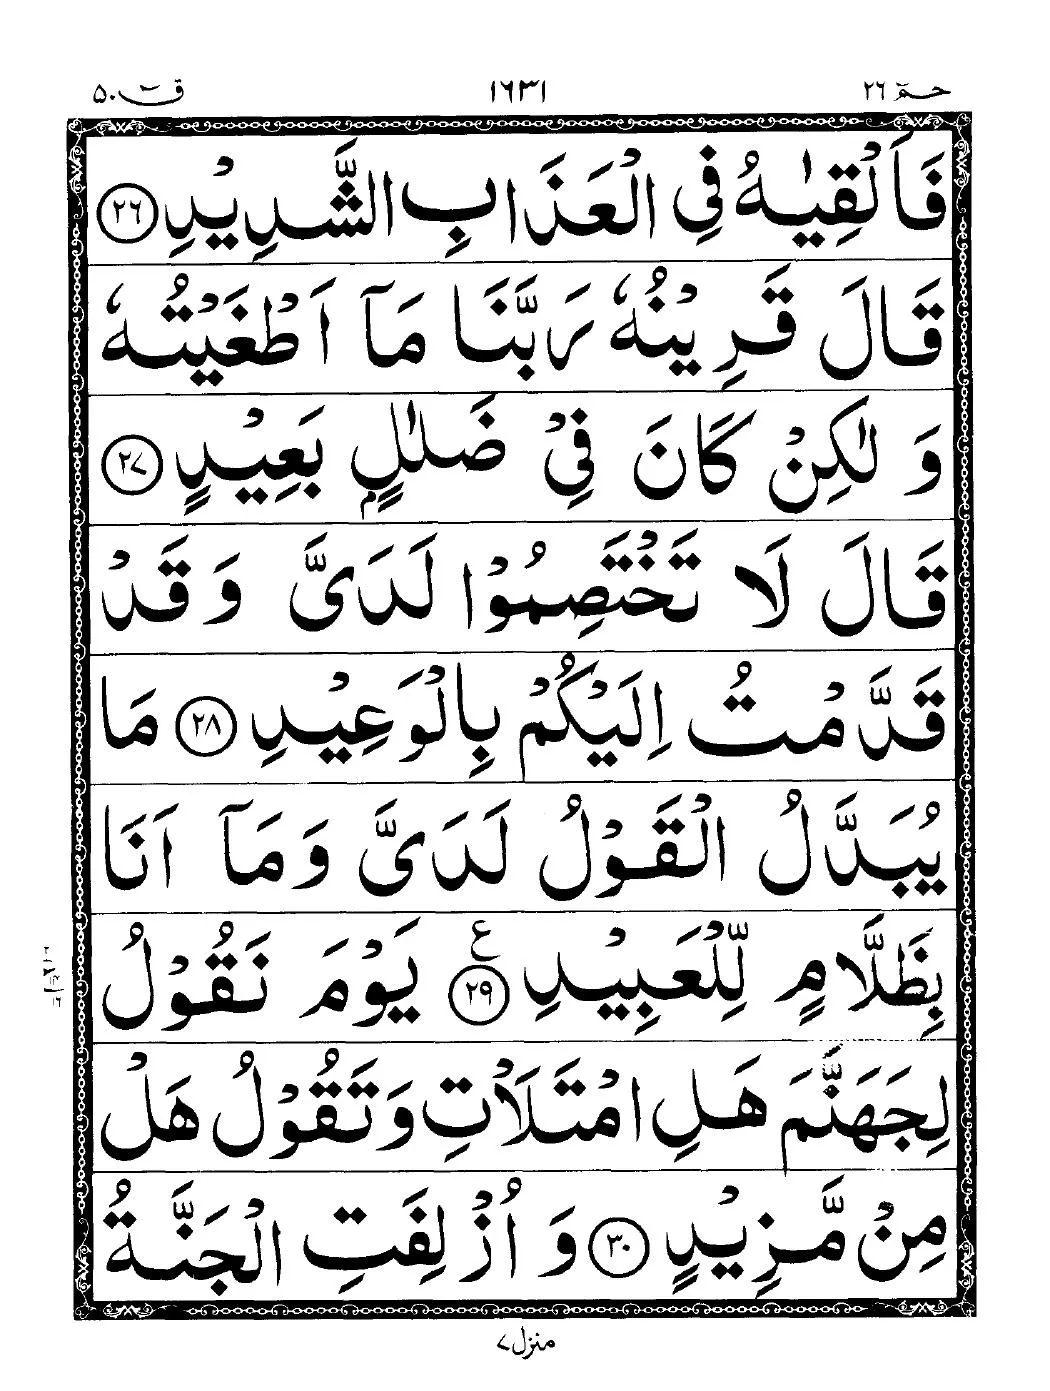 حٰمٓ ٢٦ ١٦٣١ قٓ ٥٠
فَاَلْقِيٰهُ فِي الْعَذَابِ الشَّدِيْدِ ٢٦
قَالَ قَرِيْنُهٗ رَبَّنَا مَاۤ اَطْغَيْتُهٗ
وَ لٰكِنْ كَانَ فِيْ ضَلٰلٍۭ بَعِيْدٍ ٢٧
قَالَ لَا تَخْتَصِمُوْا لَدَيَّ وَ قَدْ
قَدَّمْتُ اِلَيْكُمْ بِالْوَعِيْدِ ٢٨ مَا
يُبَدَّلُ الْقَوْلُ لَدَيَّ وَ مَاۤ اَنَا
بِظَلَّامٍ لِّلْعَبِيْدِ ٢٩ ع يَوْمَ نَقُوْلُ
لِجَهَنَّمَ هَلِ امْتَلَاْتِ وَ تَقُوْلُ هَلْ
مِنْ مَّزِيْدٍ ٣٠ وَ اُزْلِفَتِ الْجَنَّةُ
منزل ٧